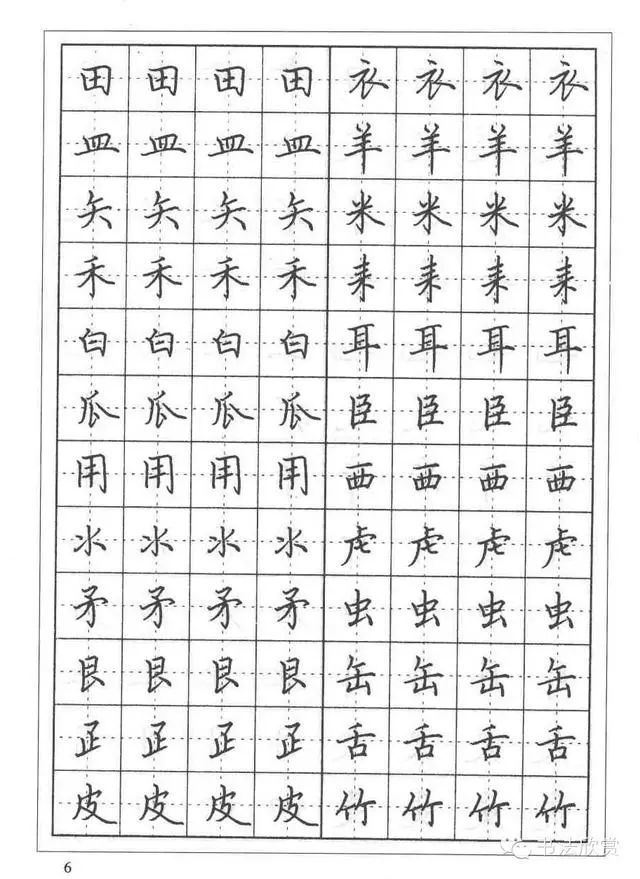 田田田田衣衣衣衣
皿皿皿皿羊羊羊羊
矢矢矢矢米米米米
禾禾禾禾耒耒耒耒
白白白白耳耳耳耳
瓜瓜瓜瓜臣臣臣臣
用用用用西西西西
氺氺氺氺虍虍虍虍
矛矛矛矛虫虫虫虫
艮艮艮艮缶缶缶缶
疋疋疋疋舌舌舌舌
皮皮皮皮竹竹竹竹
6
书法欣赏